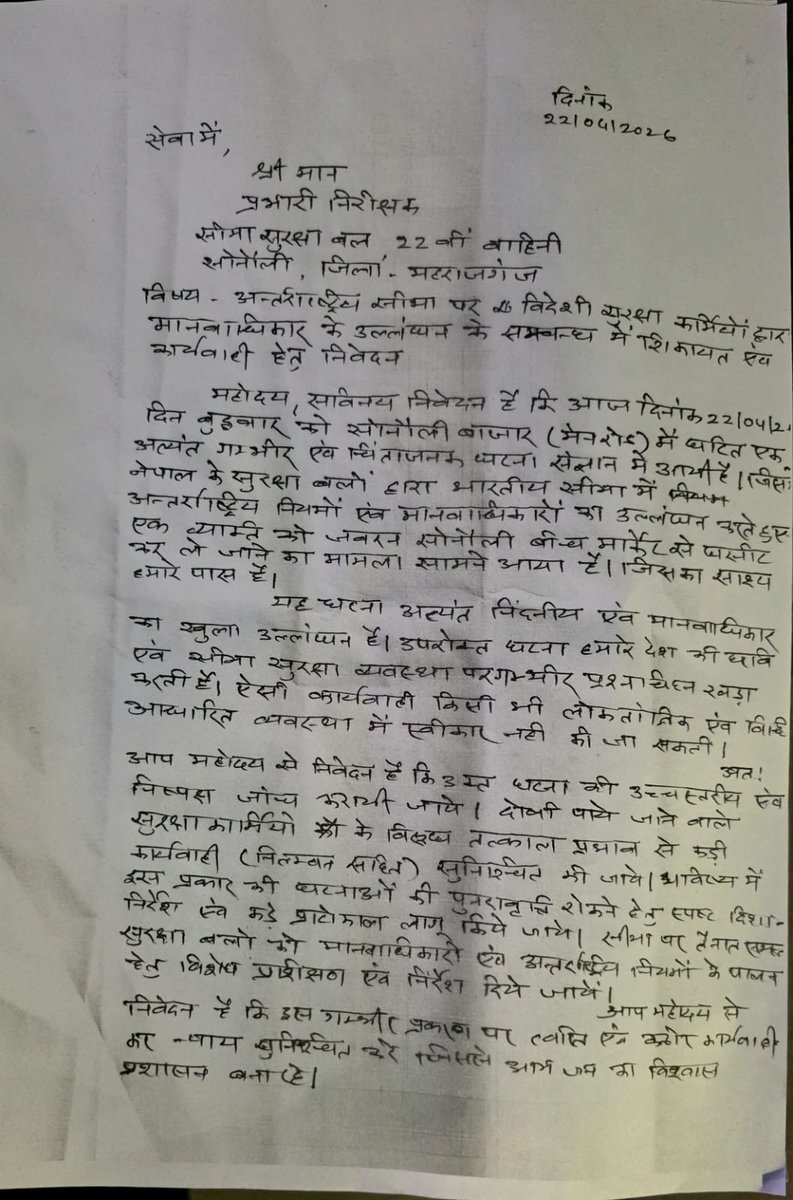 दिनांक
22/04/2026
सेवा में,
श्री मान
प्रभारी निरीक्षक
सीमा सुरक्षा बल 22वीं वाहिनी
सोनौली, जिला - महराजगंज
विषय - अन्तर्राष्ट्रीय सीमा पर विदेशी सुरक्षा कर्मियों द्वारा
मानवाधिकार के उल्लंघन के सम्बन्ध में शिकायत एंव
कार्यवाही हेतु निवेदन
महोदय, सविनय निवेदन है कि आज दिनांक 22/04/2
दिन बुद्धवार को सोनौली बाजार (मेनरोड) में घटित एक
अत्यंत गम्भीर एंव चिंताजनक घटना संज्ञान में आयी है। जिस
नेपाल के सुरक्षा बलों द्वारा भारतीय सीमा में
अन्तर्राष्ट्रीय नियमों एंव मानवाधिकारों का उल्लंघन करते हुए
एक व्यक्ति को जबरन सोनौली बीच मार्केट से घसीट
कर ले जाने का मामला सामने आया है। जिसका साक्ष्य
हमारे पास है।
यह घटना अत्यंत निंदनीय एंव मानवाधिकार
का खुला उल्लंघन है। उपरोक्त घटना हमारे देश की छवि
एंव सीमा सुरक्षा व्यवस्था पर गम्भीर प्रश्नचिह्न खड़ा
करती है। ऐसी कार्यवाही किसी भी लोकतांत्रिक एंव विधि
आधारित व्यवस्था में स्वीकार नही की जा सकती।
अतः
आप महोदय से निवेदन है कि उक्त घटना की उच्चस्तरीय एंव
निष्पक्ष जांच करायी जाये। दोषी पाये जाने वाले
सुरक्षाकर्मियो के विरूध्ध तत्काल प्रभाव से कड़ी
कार्यवाही (निलम्बन सहित) सुनिश्चित की जाये। भविष्य में
इस प्रकार की घटनाओं की पुनरावृत्ति रोकने हेतु स्पष्ट दिशा-
निर्देश एंव कड़े प्रोटोकाल लागू किये जाये। सीमा पर तैनात समस्त
सुरक्षा बलों को मानवाधिकारो एंव अन्तर्राष्ट्रीय नियमों के पालन
हेतु विशेष प्रशिक्षण एंव निर्देश दिये जायें।
आप महोदय से
निवेदन है कि इस गम्भीर प्रकरण पर त्वरित एंव कठोर कार्यवाही
कर न्याय सुनिश्चित करे जिससे आम जन का विश्वास
प्रशासन बना रहे।